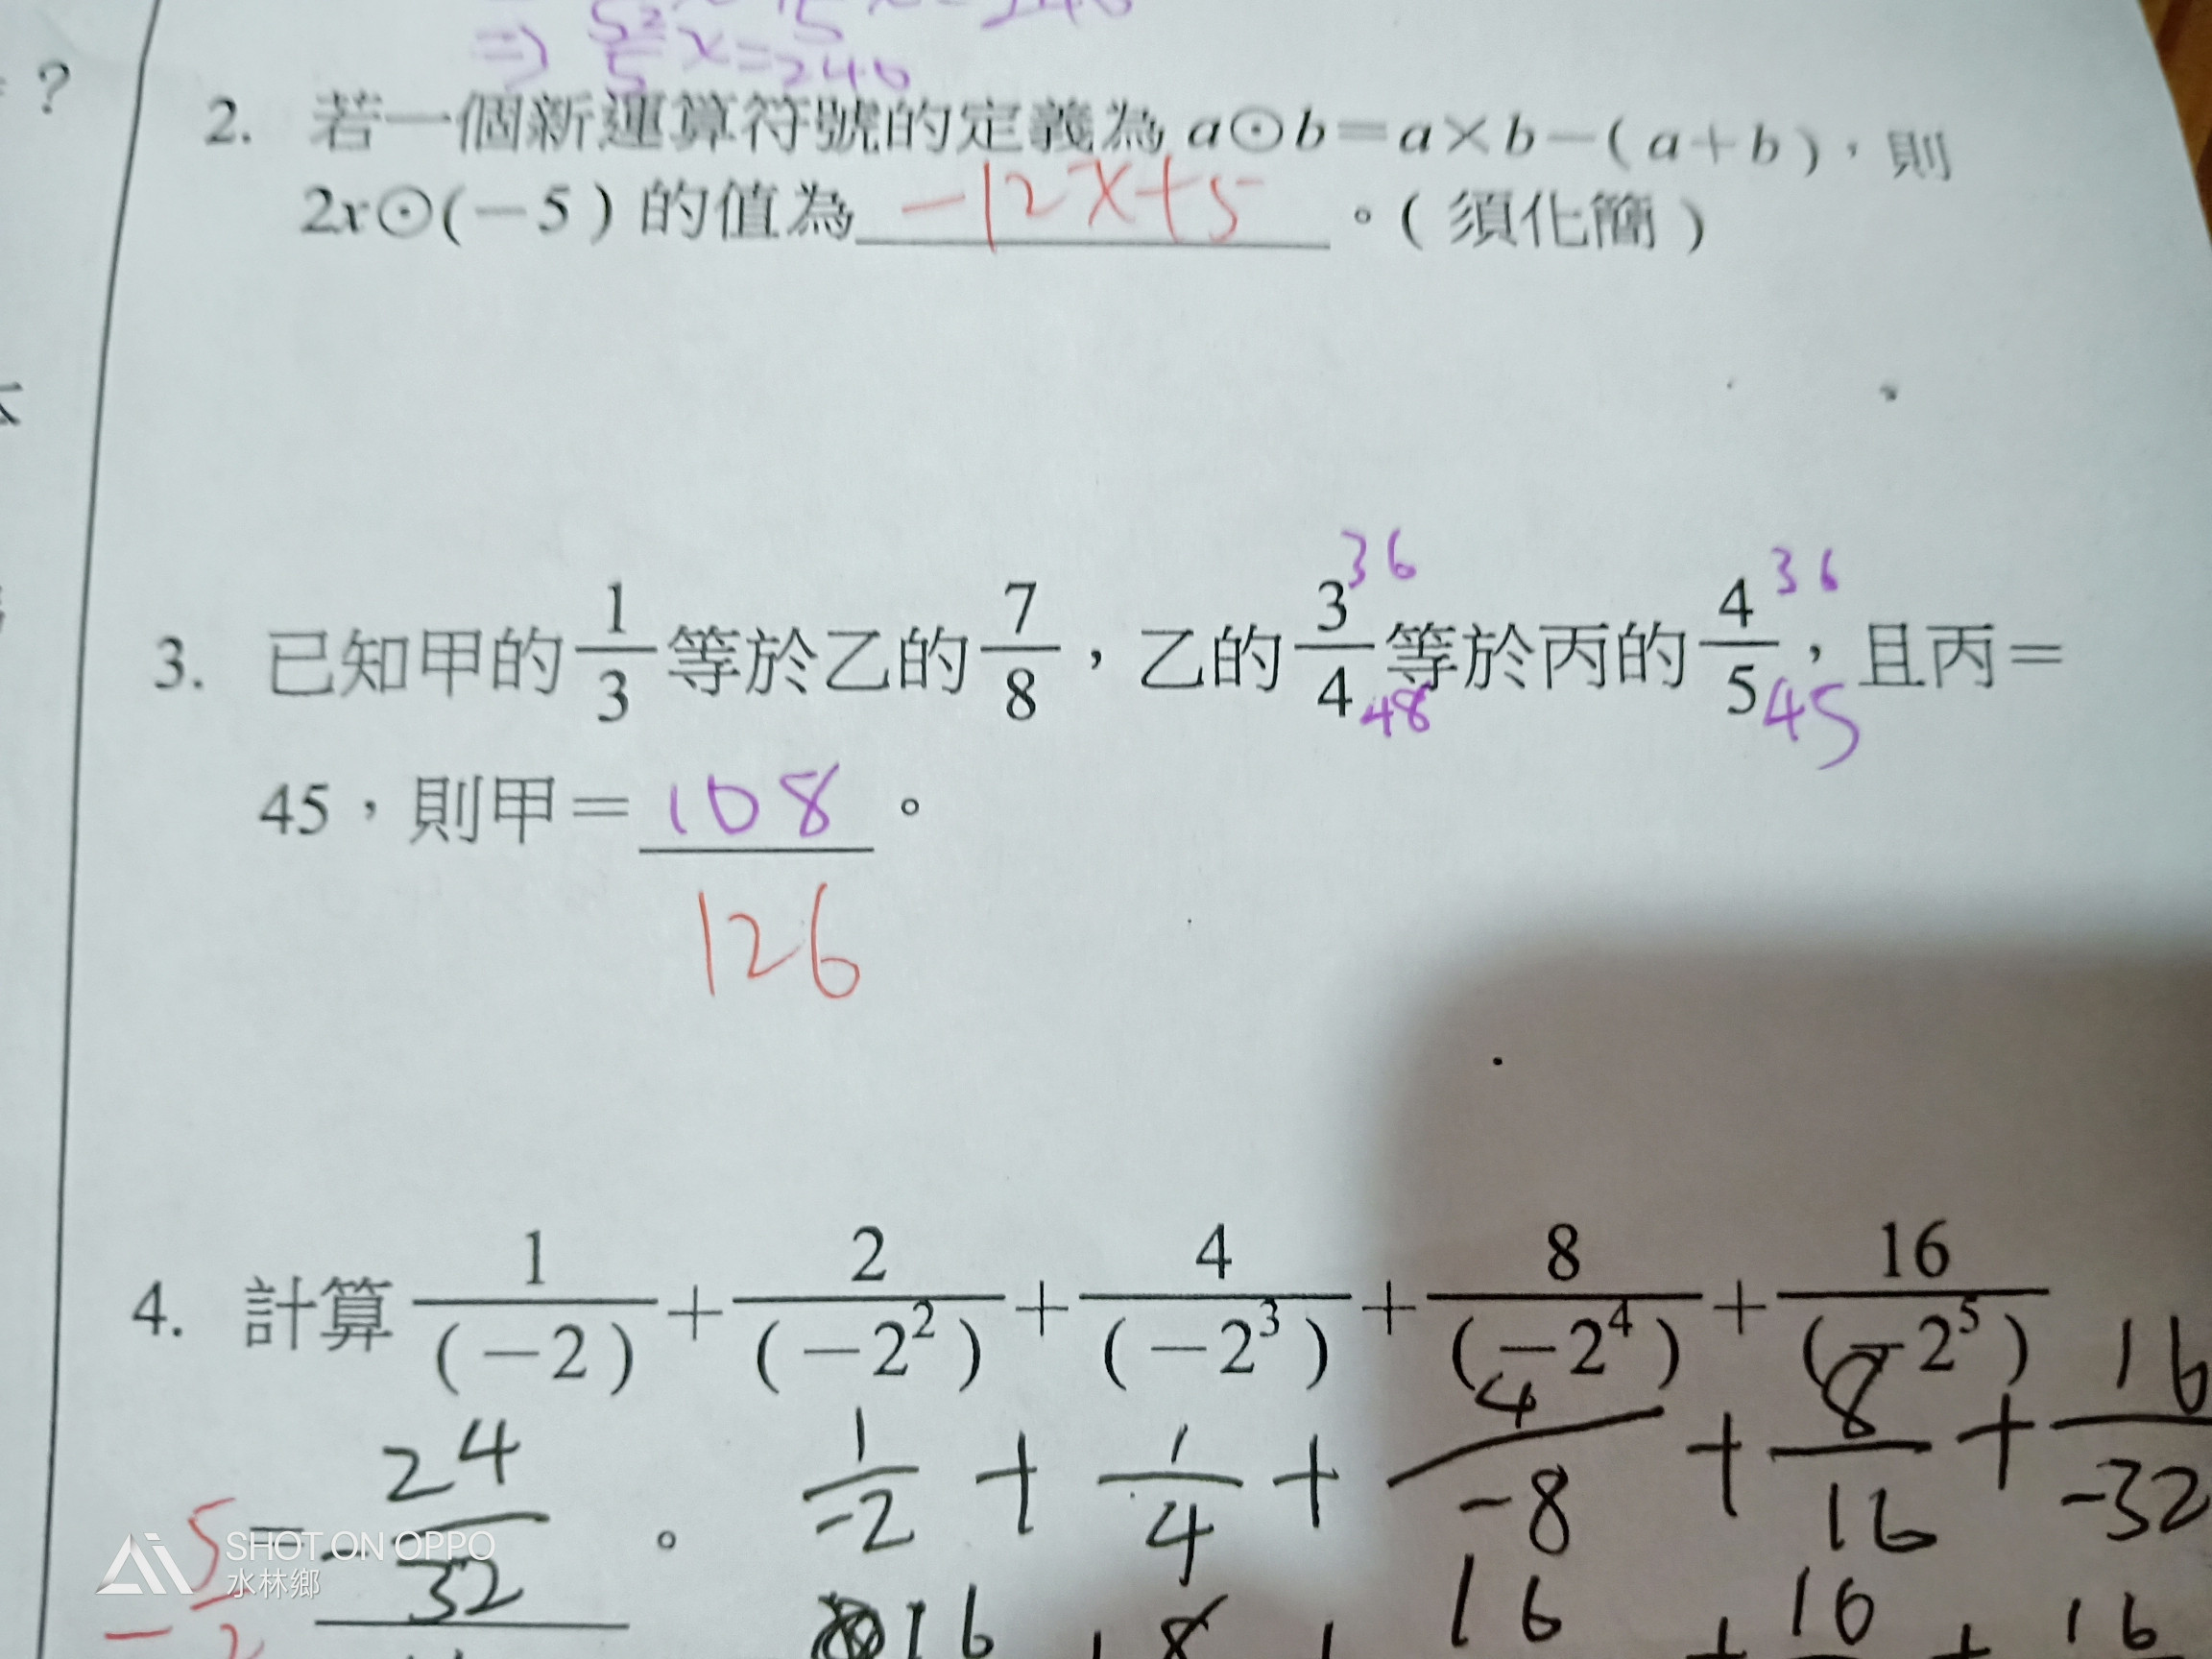 ⇒ 52/5 x=240
?
2. 若一個新運算符號的定義為 a⊙b=a×b−(a+b)，則
2x⊙(−5)的值為 −12x+5 。(須化簡)
36 36
3. 已知甲的 1/3 等於乙的 7/8，乙的 3/4 等於丙的 4/5，且丙=
48 45
45，則甲= 108 。
126
4. 計算 1/(−2) + 2/(−2²) + 4/(−2³) + 8/(−2⁴) + 16/(−2⁵)
= −24/32 。 1/−2 + 1/4 + 4/−8 + 8/16 + 16/−32
−5/2
16 + 8 + 16 + 10 + 16
SHOT ON OPPO
水林鄉